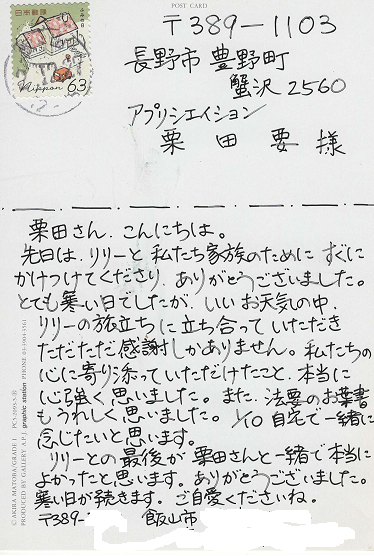 POST CARD
日本郵便
NIPPON
63
〒389-1103
長野市 豊野町
蟹沢 2560
アプリシエイション
栗田 要 様
栗田さん、こんにちは。
先日は、リリーと 私たち家族のために すぐに
かけつけてくださり、ありがとうございました。
とても寒い日でしたが、いいお天気の中、
リリーの旅立ちに立ち合っていただき
ただただ感謝しかありません。私たちの
心に寄り添っていただけたこと、本当に
心強く思いました。また、法要のお葉書
もうれしく思いました。1/10 自宅で一緒に
念じたいと思います。
リリーとの最後が 栗田さんと一緒で本当に
よかったと思います。ありがとうございました。
寒い日が続きます。ご自愛くださいね。
〒389-
飯山市
© AKIRA MATOBA/GRADE 1
PRODUCED BY GALLERY A.P.J. graphic station PHONE 03-